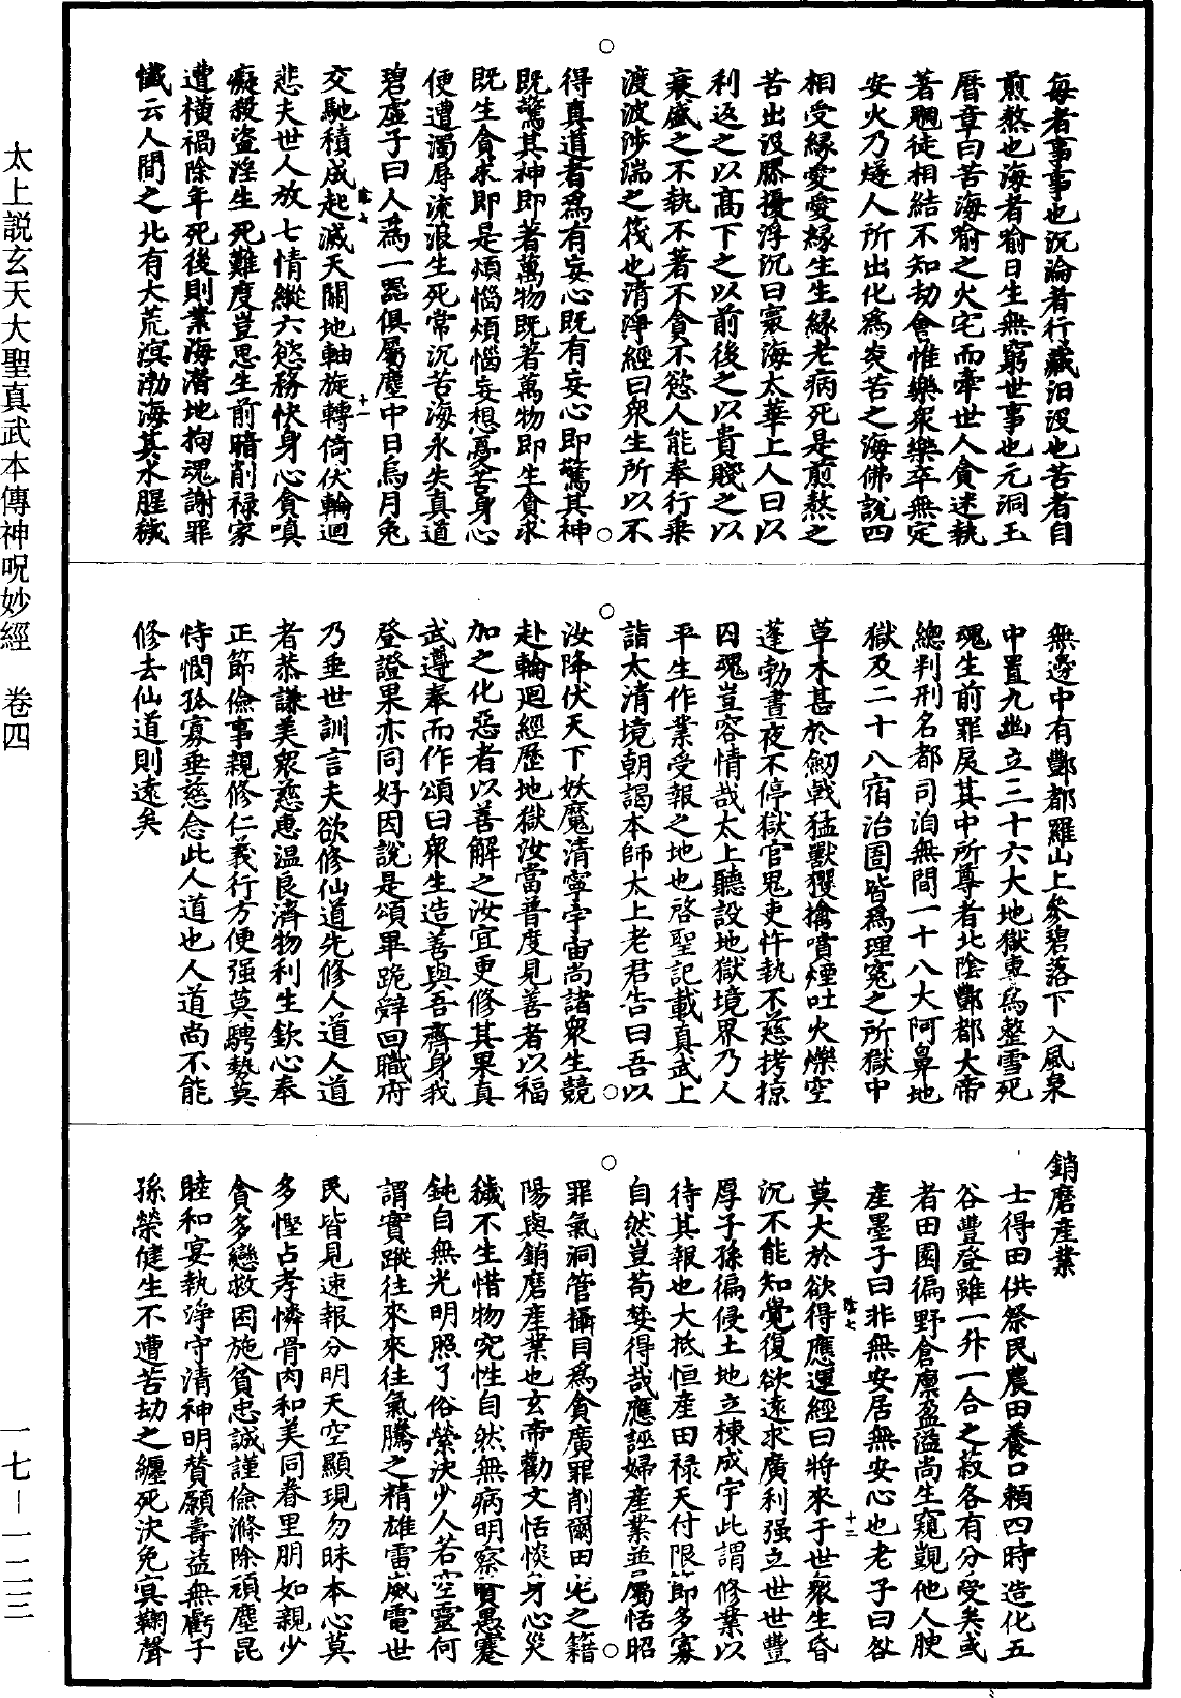 每者事事也沉淪者行藏汨没也苦者自
煎熬也海者喻日生無窮世事也元洞玉
曆章曰苦海喻之火宅而牽世人貪迷執
著親徒相結不知劫會惟樂衆樂卒無定
安火乃燧人所出化為炎苦之海佛説四
相受緣愛愛緣生生緣老病死是煎熬之
苦出没膠擾浮沉曰寰海太華上人曰以
利返之以高下之以前後之以貴賤之以
衰盛之不執不著不貪不慾人能奉行乗
渡波涉湍之筏也清淨經曰衆生所以不
得真道者為有妄心既有妄心即驚其神
既驚其神即著萬物既著萬物即生貪求
既生貪求即是煩惱煩惱妄想憂苦身心
便遭濁辱流浪生死常沉苦海永失真道
碧虚子曰人為一器俱屬塵中日烏月兔
交馳積成起滅天關地軸旋轉倚伏輪迴
悲夫世人放七情縱六慾務快身心貪嗔
癡殺盗淫生死難度豈思生前暗削禄家
遭橫禍除年死後則業海潜地拘魂謝罪
懺云人間之北有大荒溟渤海其水腥穢
無邊中有酆都羅山上參碧落下入風泉
中置九幽立三十六大地獄專為整雪死
魂生前罪戾其中所尊者北陰酆都大帝
總判刑名都司洎無間一十八大阿鼻地
獄及二十八宿治圄皆為理寃之所獄中
草木甚於劒戟猛獸玃擒噴煙吐火爍空
蓬勃晝夜不停獄官鬼吏忤執不慈拷掠
囚魂豈容情哉太上聽設地獄境界乃人
平生作業受報之地也啓聖記載真武上
詣太清境朝謁本師太上老君告曰吾以
汝降伏天下妖魔清寧宇宙尚諸衆生競
赴輪迴經歷地獄汝當普度見善者以福
加之化惡者以善解之汝宜更修其果真
武遵奉而作頌曰衆生造善與吾齊身我
登證果亦同好因説是頌畢跪辭回職府
乃垂世訓言夫欲修仙道先修人道人道
者恭謙美衆慈惠温良濟物利生欽心奉
正節儉事親修仁義行方便强莫騁勢莫
恃憫孤寡垂慈念此人道也人道尚不能
修去仙道則遠矣
銷磨産業
士得田供祭民農田養口賴四時造化五
谷豐登雖一升一合之菽各有分受矣或
者田園徧野倉廪盈溢尚生窺覬他人腴
産墨子曰非無安居無安心也老子曰咎
莫大於欲得應運經曰將來于世衆生昏
沉不能知覺復欲遠求廣利强立世世豐
厚子孫徧侵土地立棟成宇此謂修業以
待其報也大抵恒産田禄天付限節多寡
自然豈苟婪得哉應誣婦産業並屬恬昭
罪氣洞管攝目為貪廣罪削爾田宅之籍
陽與銷磨産業也玄帝勸文恬惔身心災
穢不生惜物究性自然無病明察賢愚蹇
鈍自無光明照了俗縈決少人若空靈何
謂實蹤往來來往氣騰之精雄雷威電世
民皆見速報分明天空顯現勿昧本心莫
多慳占孝憐骨肉和美同眷里朋如親少
貪多戀救因施貧忠誠謹儉滌除頑塵昆
睦和宴執淨守清神明賛願壽益無虧子
孫榮健生不遭苦劫之纏死決免㝠鞠聲
太上説玄天大聖真武本傳神呪妙經　卷四
一七－一二三